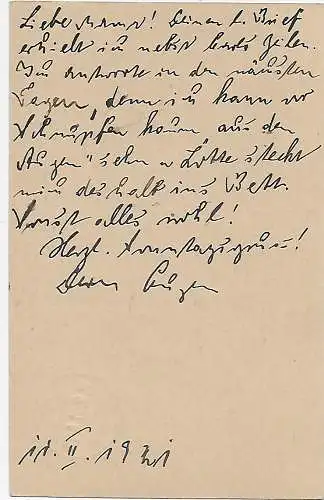 Liebe Mama! Deinen l. Brief
erhielt ich nebst Zeilen.
Ich antworte in den nächsten
Tagen, denn ich kann vor
Schnupfen kaum aus den
Augen "sehn u Lotte steckt
mich deshalb ins Bett.
Sonst alles wohl!
Herzl. Sonntagsgruss!
Dein Eugen
11. II. 19